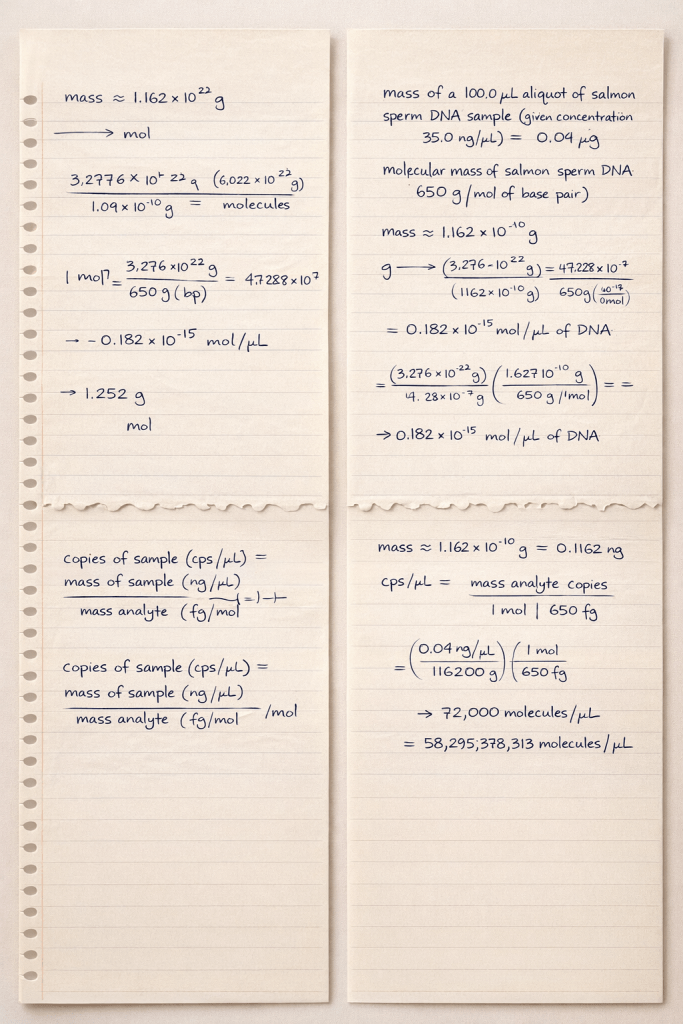 mass ≈ 1.162 × 10²² g
⟶ mol
3,2776 × 10 22 (6,022 × 10²² g)
1.09 × 10⁻¹⁰ g = molecules
1 mol = 3,276 × 10²² g / 650 g (bp) = 47.288 × 10⁷
→ - 0.182 × 10⁻¹⁵ mol/μL
→ 1.252 g
mol
copies of sample (cps/μL) =
mass of sample (ng/μL)
mass analyte (fg/mol
copies of sample (cps/μL) =
mass of sample (ng/μL)
mass analyte (fg/mol /mol
mass of a 100.0 μL aliquot of salmon
sperm DNA sample (given concentration
35.0 ng/μL) = 0.04 μg
molecular mass of salmon sperm DNA
650 g/mol of base pair)
mass ≈ 1.162 × 10⁻¹⁰ g
g ⟶ (3,276 - 10²² g) = 47.228 × 10⁻⁷
(1162 × 10⁻¹⁰ g) 650g
= 0.182 × 10⁻¹⁵ mol/μL of DNA
= (3.276 × 10⁻²² g) (1.627 10⁻¹⁰ g) = =
14. 28 × 10⁻⁷ g 650 g /1mol
→ 0.182 × 10⁻¹⁵ mol/μL of DNA
mass ≈ 1.162 × 10⁻¹⁰ g = 0.1162 ng
cps/μL = mass analyte copies
1 mol | 650 fg
= (0.04 ng/μL) (1 mol
116200 g) 650 fg
→ 72,000 molecules/μL
= 58,295;378,313 molecules/μL